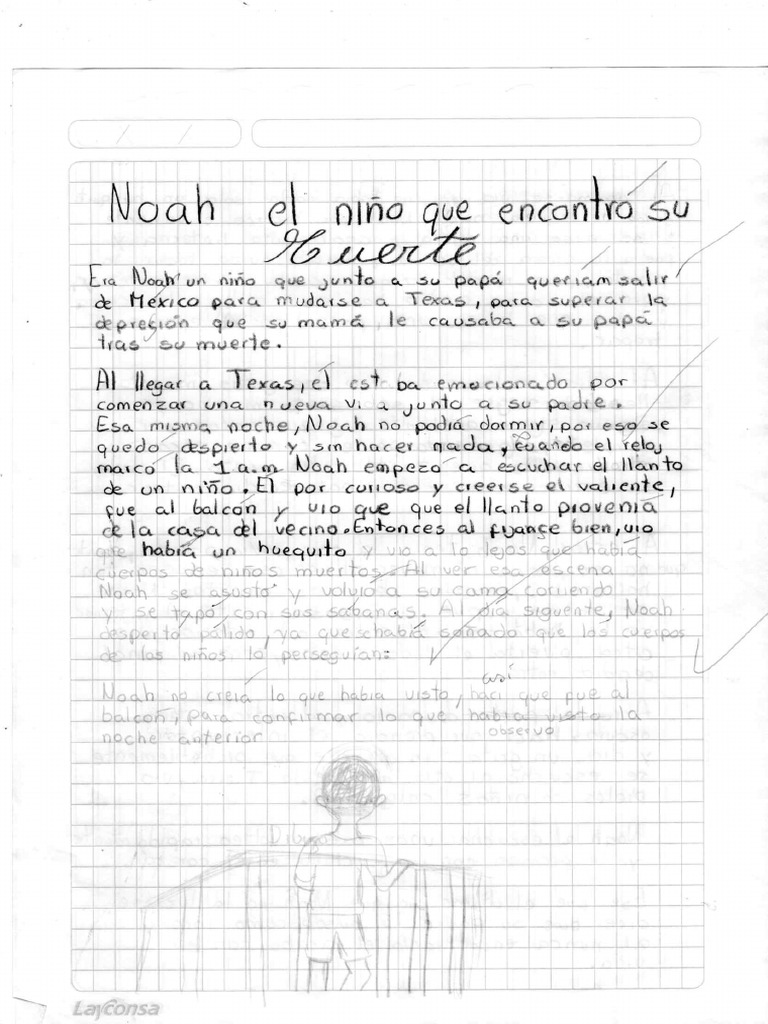 Noah el niño que encontró su
Muerte
Era Noah un niño que junto a su papá queriam salir
de México para mudarse a Texas, para superar la
depresión que su mamá le causaba a su papá
tras su muerte.
Al llegar a Texas, él est ba emocionado por
comenzar una nueva vi a junto a su padre.
Esa misma noche, Noah no podía dormir, por eso se
quedo despierto y sin hacer nada, cuando el reloj
marcó la 1 a.m Noah empezó a escuchar el llanto
de un niño. El por curioso y creerse el valiente,
fue al balcón y vio que que el llanto provenía
de la casa del vecino. Entonces al fijarse bien, vio
que había un huequito y vio a lo lejos que había
cuerpos de niños muertos. Al ver esa escena
Noah se asustó y volvió a su cama corriendo
y se tapó con sus sabanas. Al día siguente, Noah
despertó pálido, ya que había soñado que los cuerpos
de los niños lo perseguían.
así
Noah no creía lo que había visto, haci que fue al
balcón, para confirmar lo que había visto la
observo
noche anterior
Dibujo
Layconsa